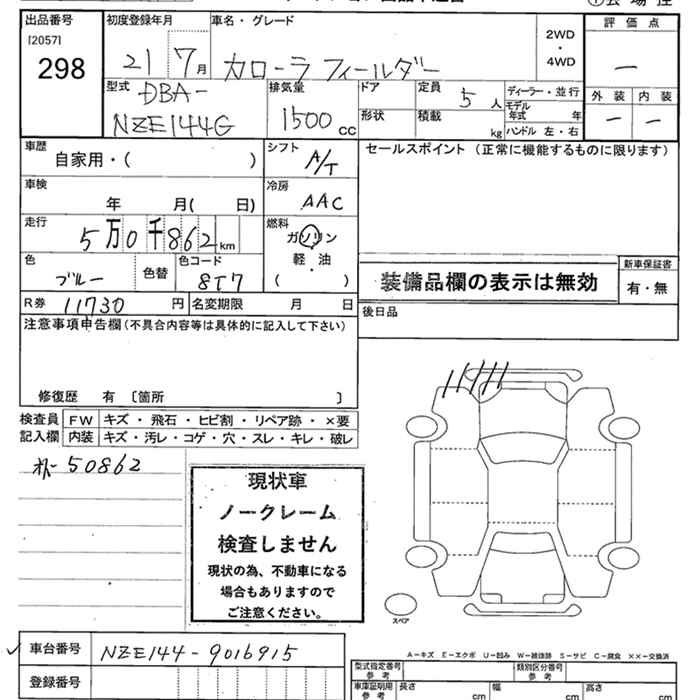 出品番号
[2057]
298
初度登録年月
21 7月
車名・グレード
カローラ フィールダー
2WD
・
4WD
評価点
—
外装 内装
— —
型式
DBA-
NZE144G
排気量
1500 cc
ドア
定員 5人
ディーラー・並行
形状
積載 kg
モデル年式 年
ハンドル 左・右
車歴
自家用・( )
シフト
A/T
セールスポイント (正常に機能するものに限ります)
車検
年 月( 日)
冷房
AAC
走行
5万0千862km
燃料
ガソリン
・
軽油
・
( )
色
ブルー
色替
色コード
8T7
装備品欄の表示は無効
新車保証書
有・無
R券 11730 円
名変期限 月 日
後日品
注意事項申告欄(不具合内容等は具体的に記入して下さい)
修復歴 有 〔箇所 〕
検査員
記入欄
FW キズ・飛石・ヒビ割・リペア跡・×要
内装 キズ・汚レ・コゲ・穴・スレ・キレ・破レ
50862
現状車
ノークレーム
検査しません
現状の為、不動車になる
場合もありますので
ご注意ください。
スペア
A－キズ E－エクボ U－凹み W－補修跡 S－サビ C－腐食 ××－交換済
車台番号 NZE144-9016915
登録番号
型式指定番号
参考
類別区分番号
参考
車庫証明用
参考
長さ cm
幅 cm
高さ cm